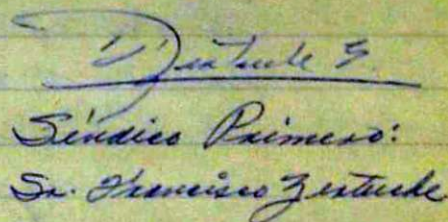 Zertuche G.
Síndico Primero:
Sr. Francisco Zertuche